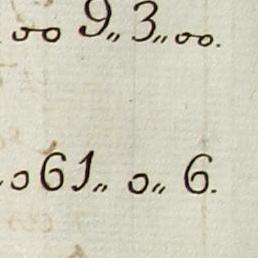 oo 9,, 3,, oo.
o 61,, o,, 6.